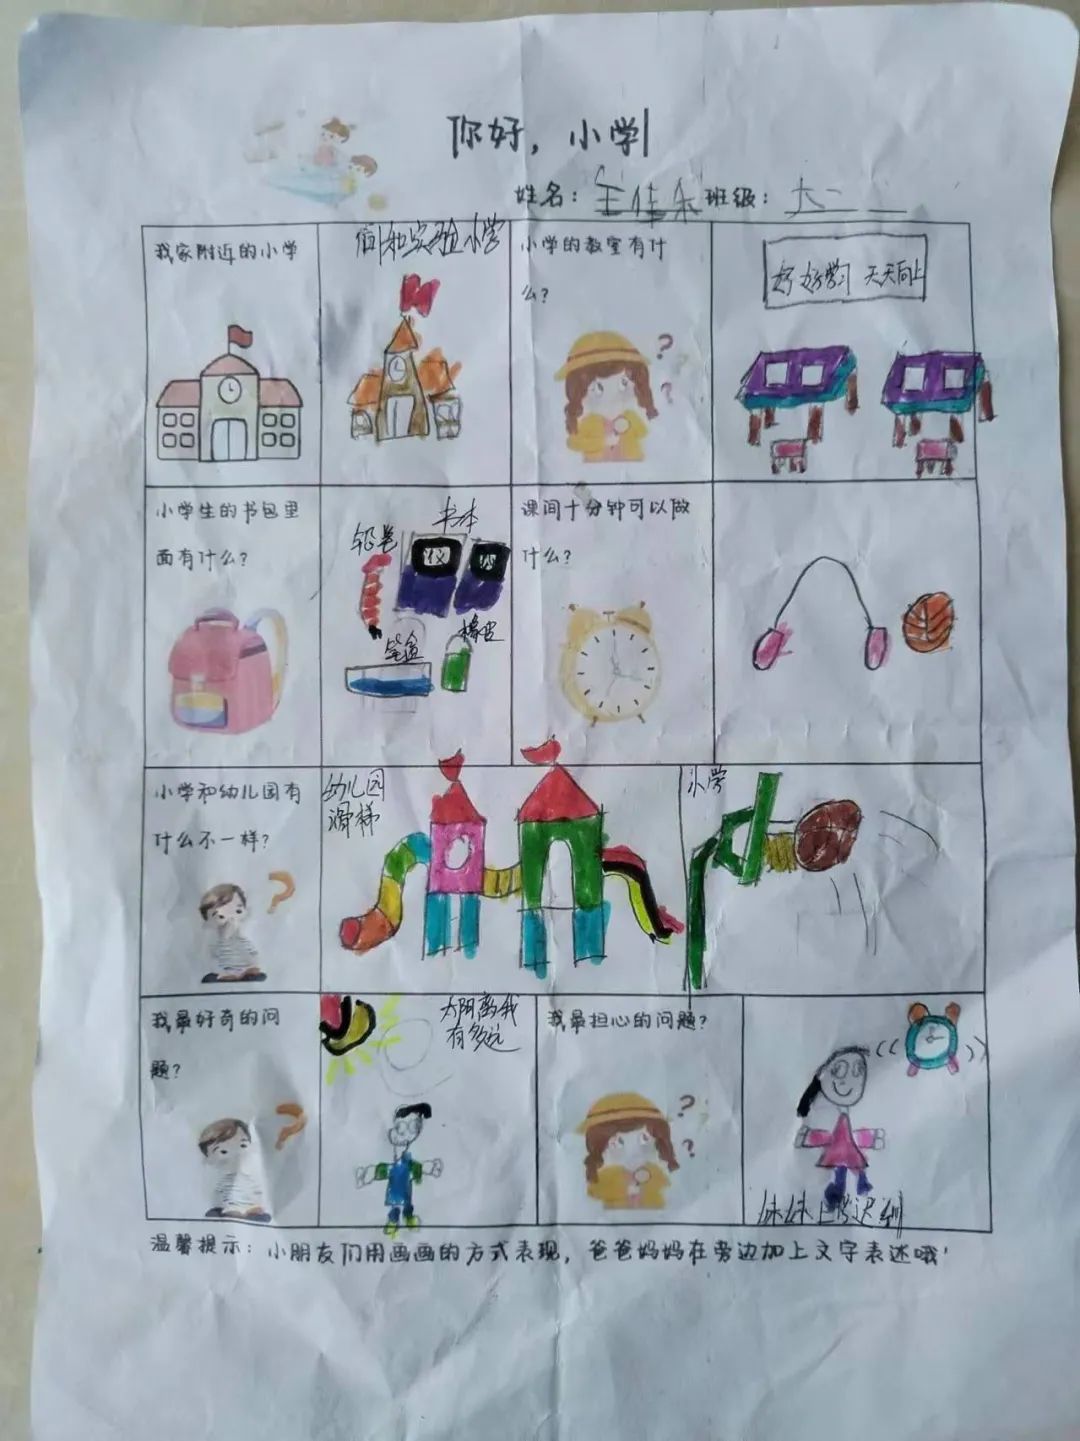 你好，小学
姓名：王佳
班级：大二
我家附近的小学
实验小学
小学的教室有什
么？
好好学习 天天向上
小学生的书包里
面有什么？
书本
铅笔
笔盒
橡皮
课间十分钟可以做
什么？
小学和幼儿园有
什么不一样？
幼儿园
滑梯
小学
我最好奇的问
题？
太阳离我
有多远
我最担心的问题？
妹妹上学迟到
温馨提示：小朋友们用画画的方式表现，爸爸妈妈在旁边加上文字表达哦！